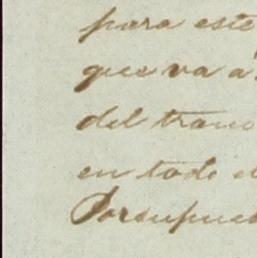 para este
que va á
del trans
en todo e
Porsupues